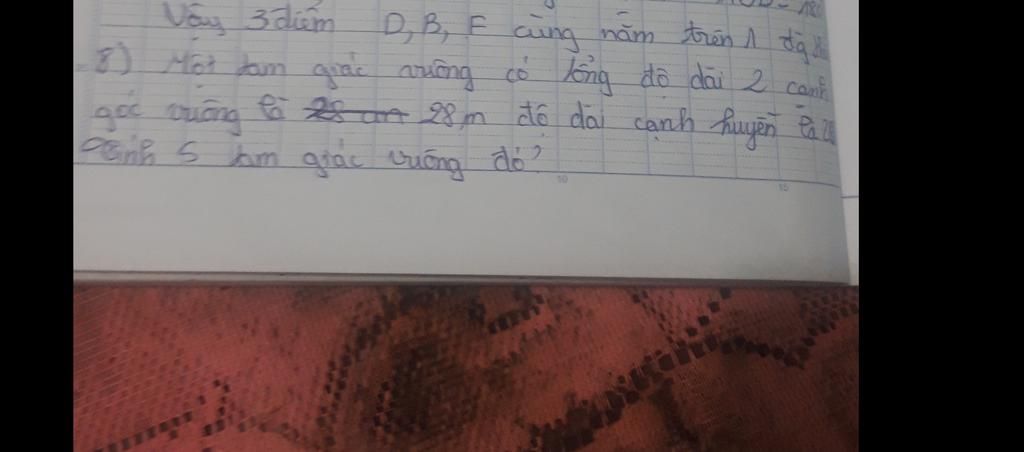 Vậy 3 điểm D, B, E cùng nằm trên 1 đg
8) Một tam giác vuông có tổng độ dài 2 cạnh
góc vuông là 28 m độ dài cạnh huyền là
Tính S tam giác vuông đó?
10 15